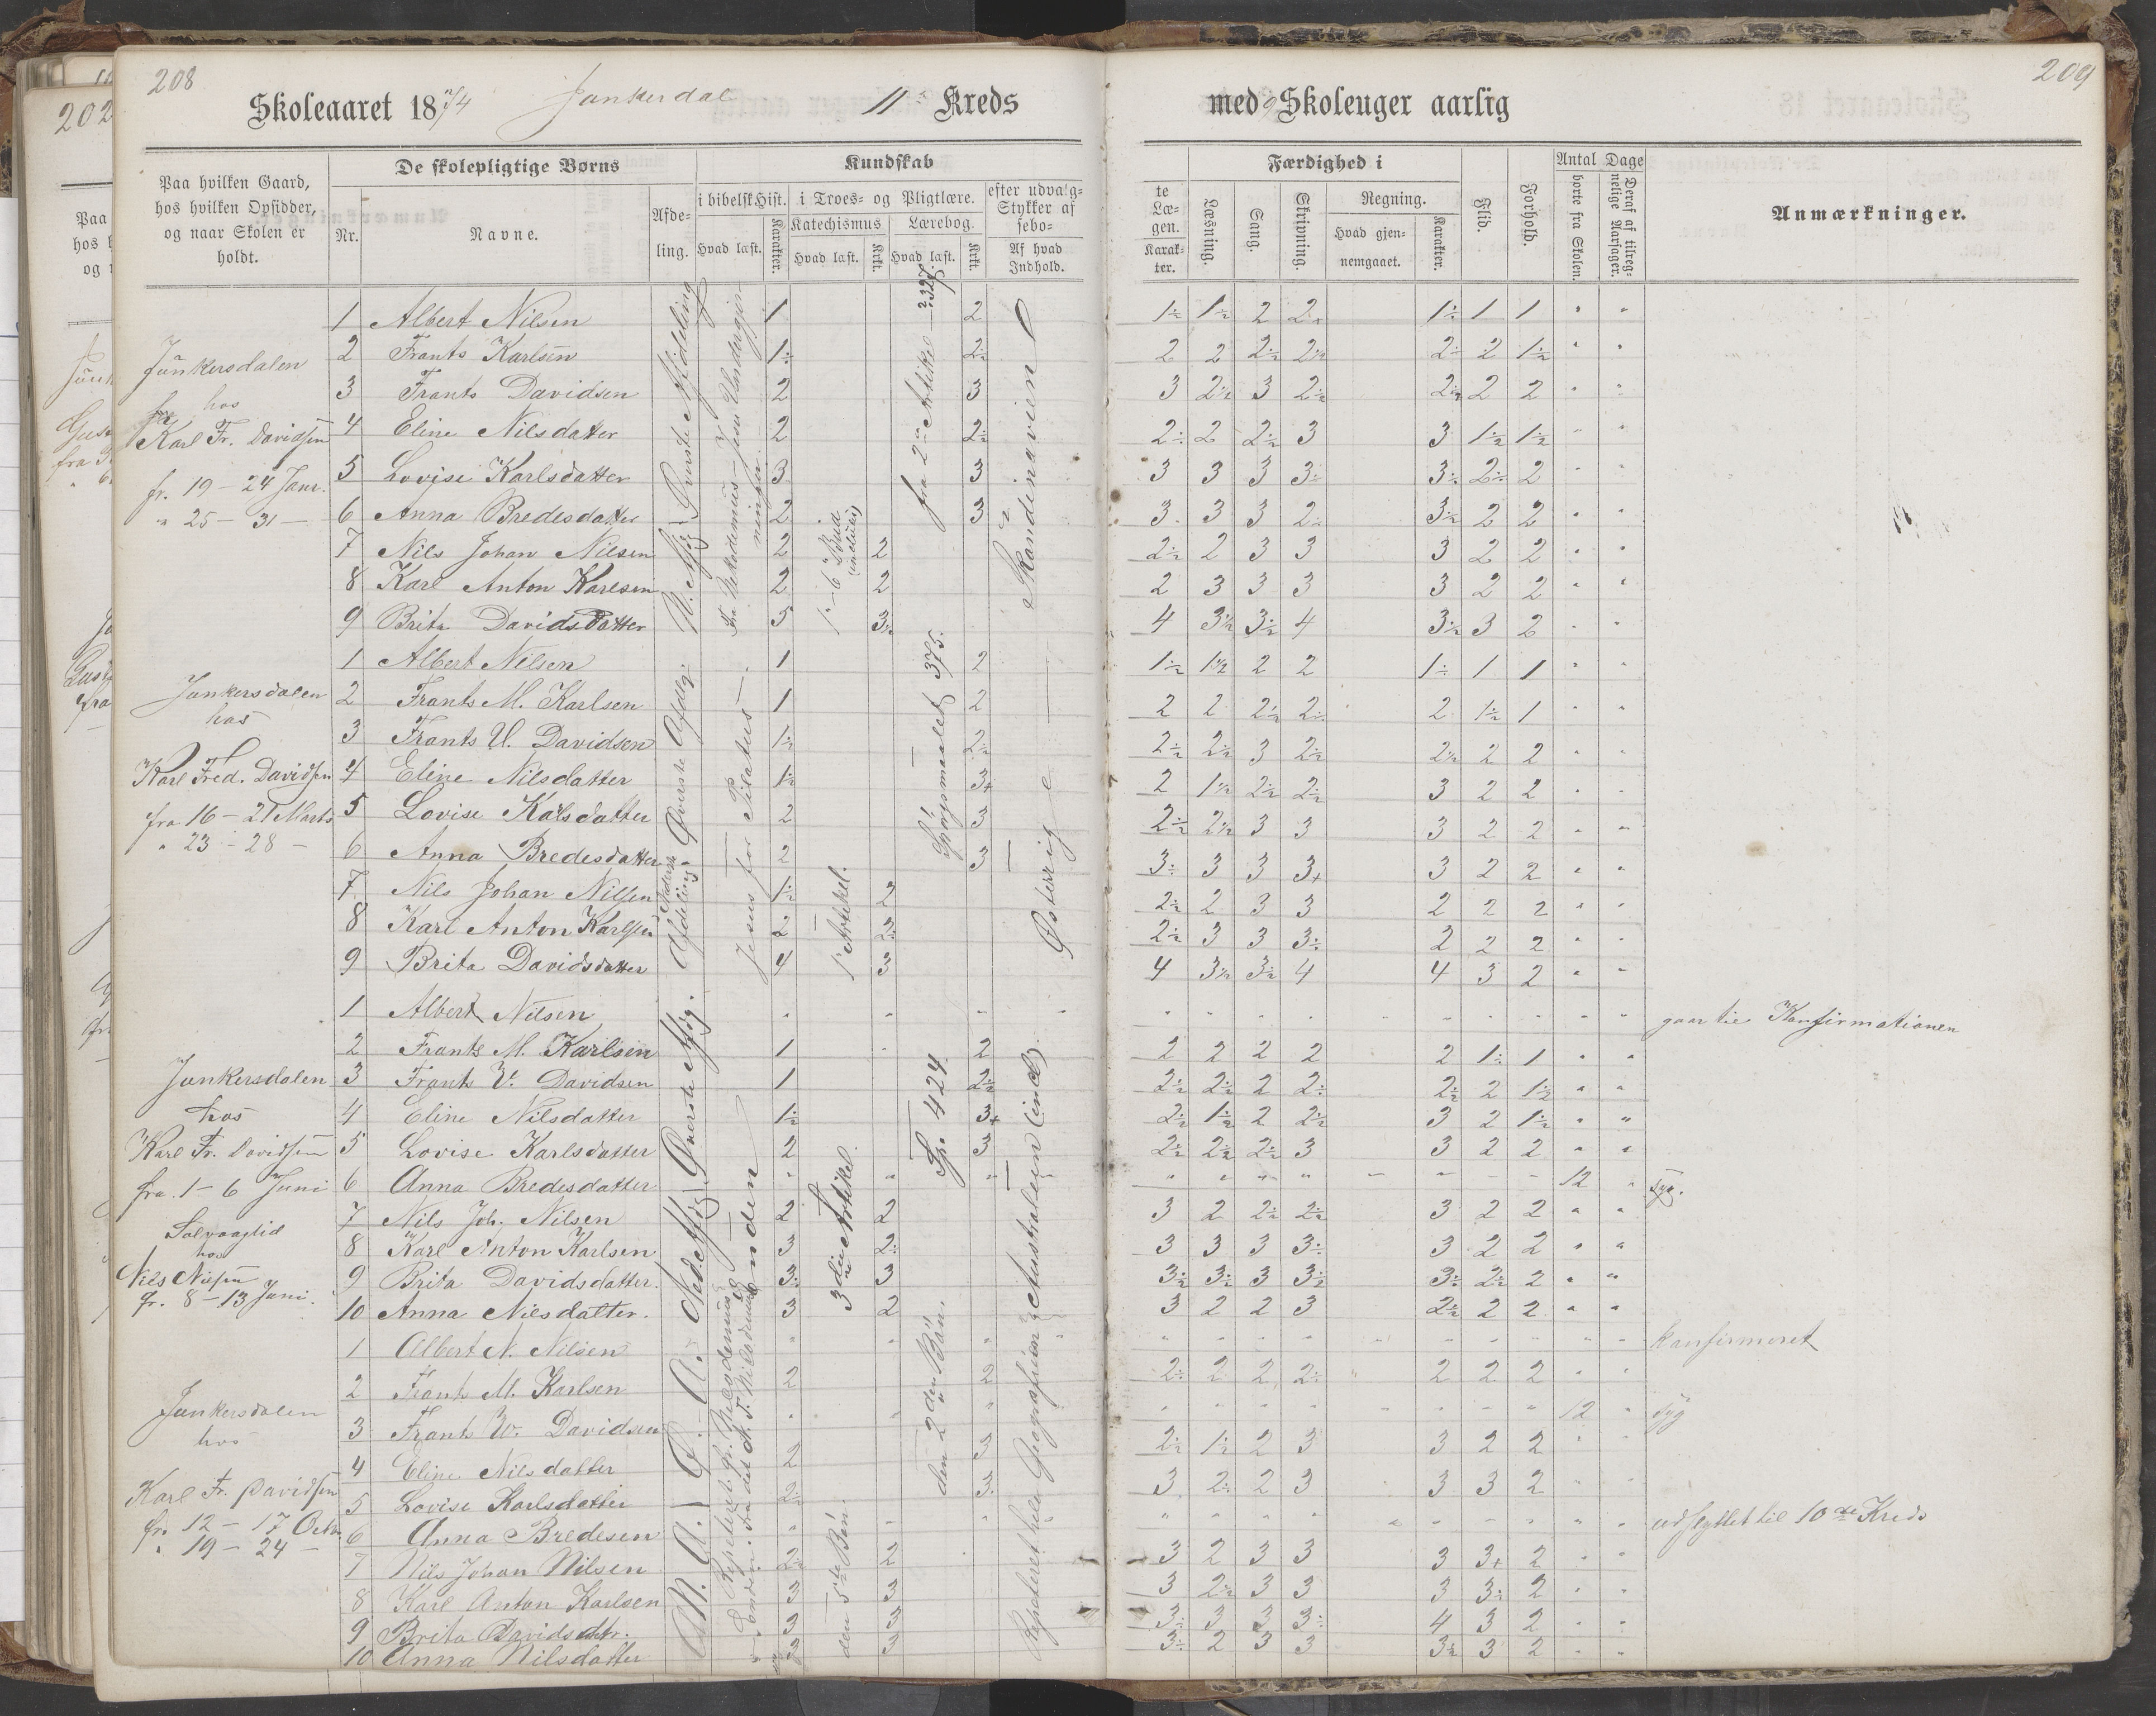 208
Skoleaaret 1874 Junkerdal 11 Kreds
Paa hvilken Gaard, hos hvilken Opsidder, og naar Skolen er holdt.
De skolepligtige Børns
Nr. Navne. Afdeling.
Kundskab
i bibelsk Hist. i Troes- og Pligtlære. efter udvalg-
Stykker af
Katechismus Lærebog. sebo-
Hvad læst. Karakter. Hvad læst. Krkt. Hvad læst. Krkt. Af hvad Indhold.
Junkersdalen
hos
Karl Fr. Davidsen
fr. 19 - 24 Janr.
" 25 - 31 -
1 Albert Nilsen 1 2
2 Frants Karlsen 1÷ 2÷
3 Frants Davidsen 2 3
4 Eline Nilsdatter 2 2÷
5 Lovise Karlsdatter 3 3
6 Anna Bredesdatter 2 3
7 Nils Johan Nilsen 2 2
8 Karl Anton Karlsen 2 2
9 Brita Davidsdatter 5 3½
Øverste Afdeling
Skandinavien
Junkersdalen
hos
Karl Fred. Davidsen
fra 16 - 21 Marts
" 23 - 28 -
1 Albert Nilsen 1 2
2 Frants M. Karlsen 1 2
3 Frants U. Davidsen 1½ 2½
4 Eline Nilsdatter 1½ 3+
5 Lovise Kalsdatter 2 3
6 Anna Bredesdatter 2 3
7 Nils Johan Nilsen 1½ 2
8 Karl Anton Karlsen 2 2÷
9 Brita Davidsdatter 4 3
Øverste Afdlg.
Nederste Afdeling
Jesus for Pilatus
1ste Artikel.
Spørgsmaalet 375.
Østerrig
Junkersdalen
hos
Karl Fr. Davidsen
fra 1 - 6 Juni
Solvaaglid
hos
Nils Nilsen
fr. 8 - 13 Juni.
1 Albert Nilsen
2 Frants M. Karlsen 1 2
3 Frants W. Davidsen 1 2½
4 Eline Nilsdatter 1½ 3+
5 Lovise Karlsdatter 2 3
6 Anna Bredesdatter
7 Nils Joh. Nilsen 2 2
8 Karl Anton Karlsen 3 2÷
9 Brita Davidsdatter. 3÷ 3
10 Anna Nilsdatter. 3 2
Enden
3die Artikel
Sp. 424
Australien (incl.)
Junkersdalen
hos
Karl Fr. Davidsen
fr. 12 - 17 Octr.
" 19 - 24 -
1 Albert N. Nilsen
2 Frants M. Karlsen 2 2
3 Frants W. Davidsen
4 Eline Nilsdatter 2 3
5 Lovise Karlsdatter 2½ 3.
6 Anna Bredesen
7 Nils Johan Nilsen 2½ 2
8 Karl Anton Karlsen 3 3
9 Brita Davidsdtr. 3 3
10 Anna Nilsdatter 3 3
den 5te Bøn.
den 2den Bøn.
Repeteret hele Geografien
209
med 9 Skoleuger aarlig
te Læ-gen. Karak-ter.
Færdighed i
Læsning. Sang. Skrivning. Regning. Hvad gjen-nemgaaet. Karakter.
Flid. Forhold.
Antal Dage
borte fra Skolen. Deraf af tilreg-nelige Aarsager.
Anmærkninger.
1½ 1½ 2 2+ 1÷ 1 1 " "
2 2 2½ 2½ 2÷ 2 1½ " "
3 2½ 3 2½ 2½ 2 2 " "
2÷ 2 2½ 3 3 1½ 1½ " "
3 3 3 3÷ 3÷ 2÷ 2 " "
3 3 3 2÷ 3½ 2 2 " "
2½ 2 3 3 3 2 2 " "
2 3 3 3 3 2 2 " "
4 3½ 3½ 4 3½ 3 2 " "
1½ 1½ 2 2 1÷ 1 1 " "
2 2 2½ 2÷ 2 1½ 1 " "
2½ 2½ 3 2½ 2½ 2 2 " "
2 1½ 2½ 2½ 3 2 2 " "
2½ 2½ 3 3 3 2 2 " "
3÷ 3 3 3+ 3 2 2 " "
2½ 2 3 3 2 2 2 " "
2½ 3 3 3÷ 2 2 2 " "
4 3½ 3½ 4 4 3 2 " "
gaar til Konfirmationen
2 2 2 2 2 1÷ 1 " "
2½ 2½ 2 2÷ 2½ 2 1½ " "
2½ 1½ 2 2½ 3 2 1½ " "
2½ 2½ 2½ 3 3 2 2 " "
12 " syg.
3 2 2½ 2½ 3 2 2 " "
3 3 3 3÷ 3 2 2 " "
3½ 3½ 3 3½ 3÷ 2½ 2 " "
3 2 2 3 2½ 2 2 " "
konfirmeret
2÷ 2 2 2÷ 2 2 2 " "
12 " syg
2½ 1½ 2 3 3 2 2 " "
3 2÷ 2 3 3 3 2 " "
udflyttet til 10de Kreds
3 2 3 3 3 3+ 2 " "
3 2½ 3 3 3 3÷ 2 " "
3÷ 3 3 3÷ 4 3 2 " "
3÷ 2 3 3 3½ 3 2 " "